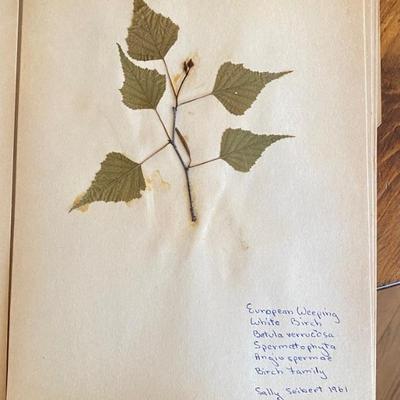 European Weeping
White Birch
Betula verrucosa
Spermatophyta
Angiospermae
Birch Family
Sally Seibert 1961